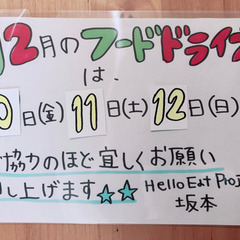 12月のフードドライブ
は、
10日(金)11日(土)12日(日)
ご協力のほど宜しくお願い
申し上げます☆☆ Hello Eat Pro
坂本